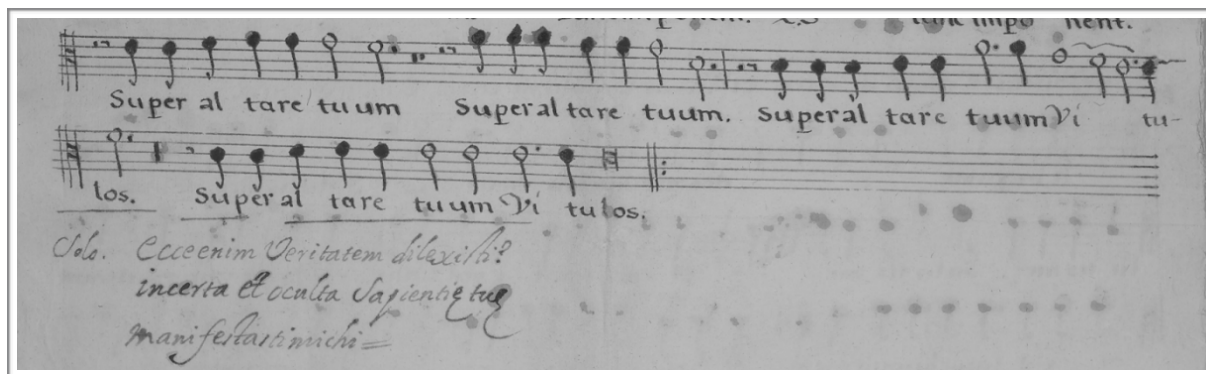 tunc impo nent.
Super al tare tuum Super al tare tuum. Super al tare tuum Vi tu-
los. Super al tare tuum Vi tulos.
Solo. Ecce enim Veritatem dilexisti:
incerta et oculta Sapientię tuę
manifestasti michi=